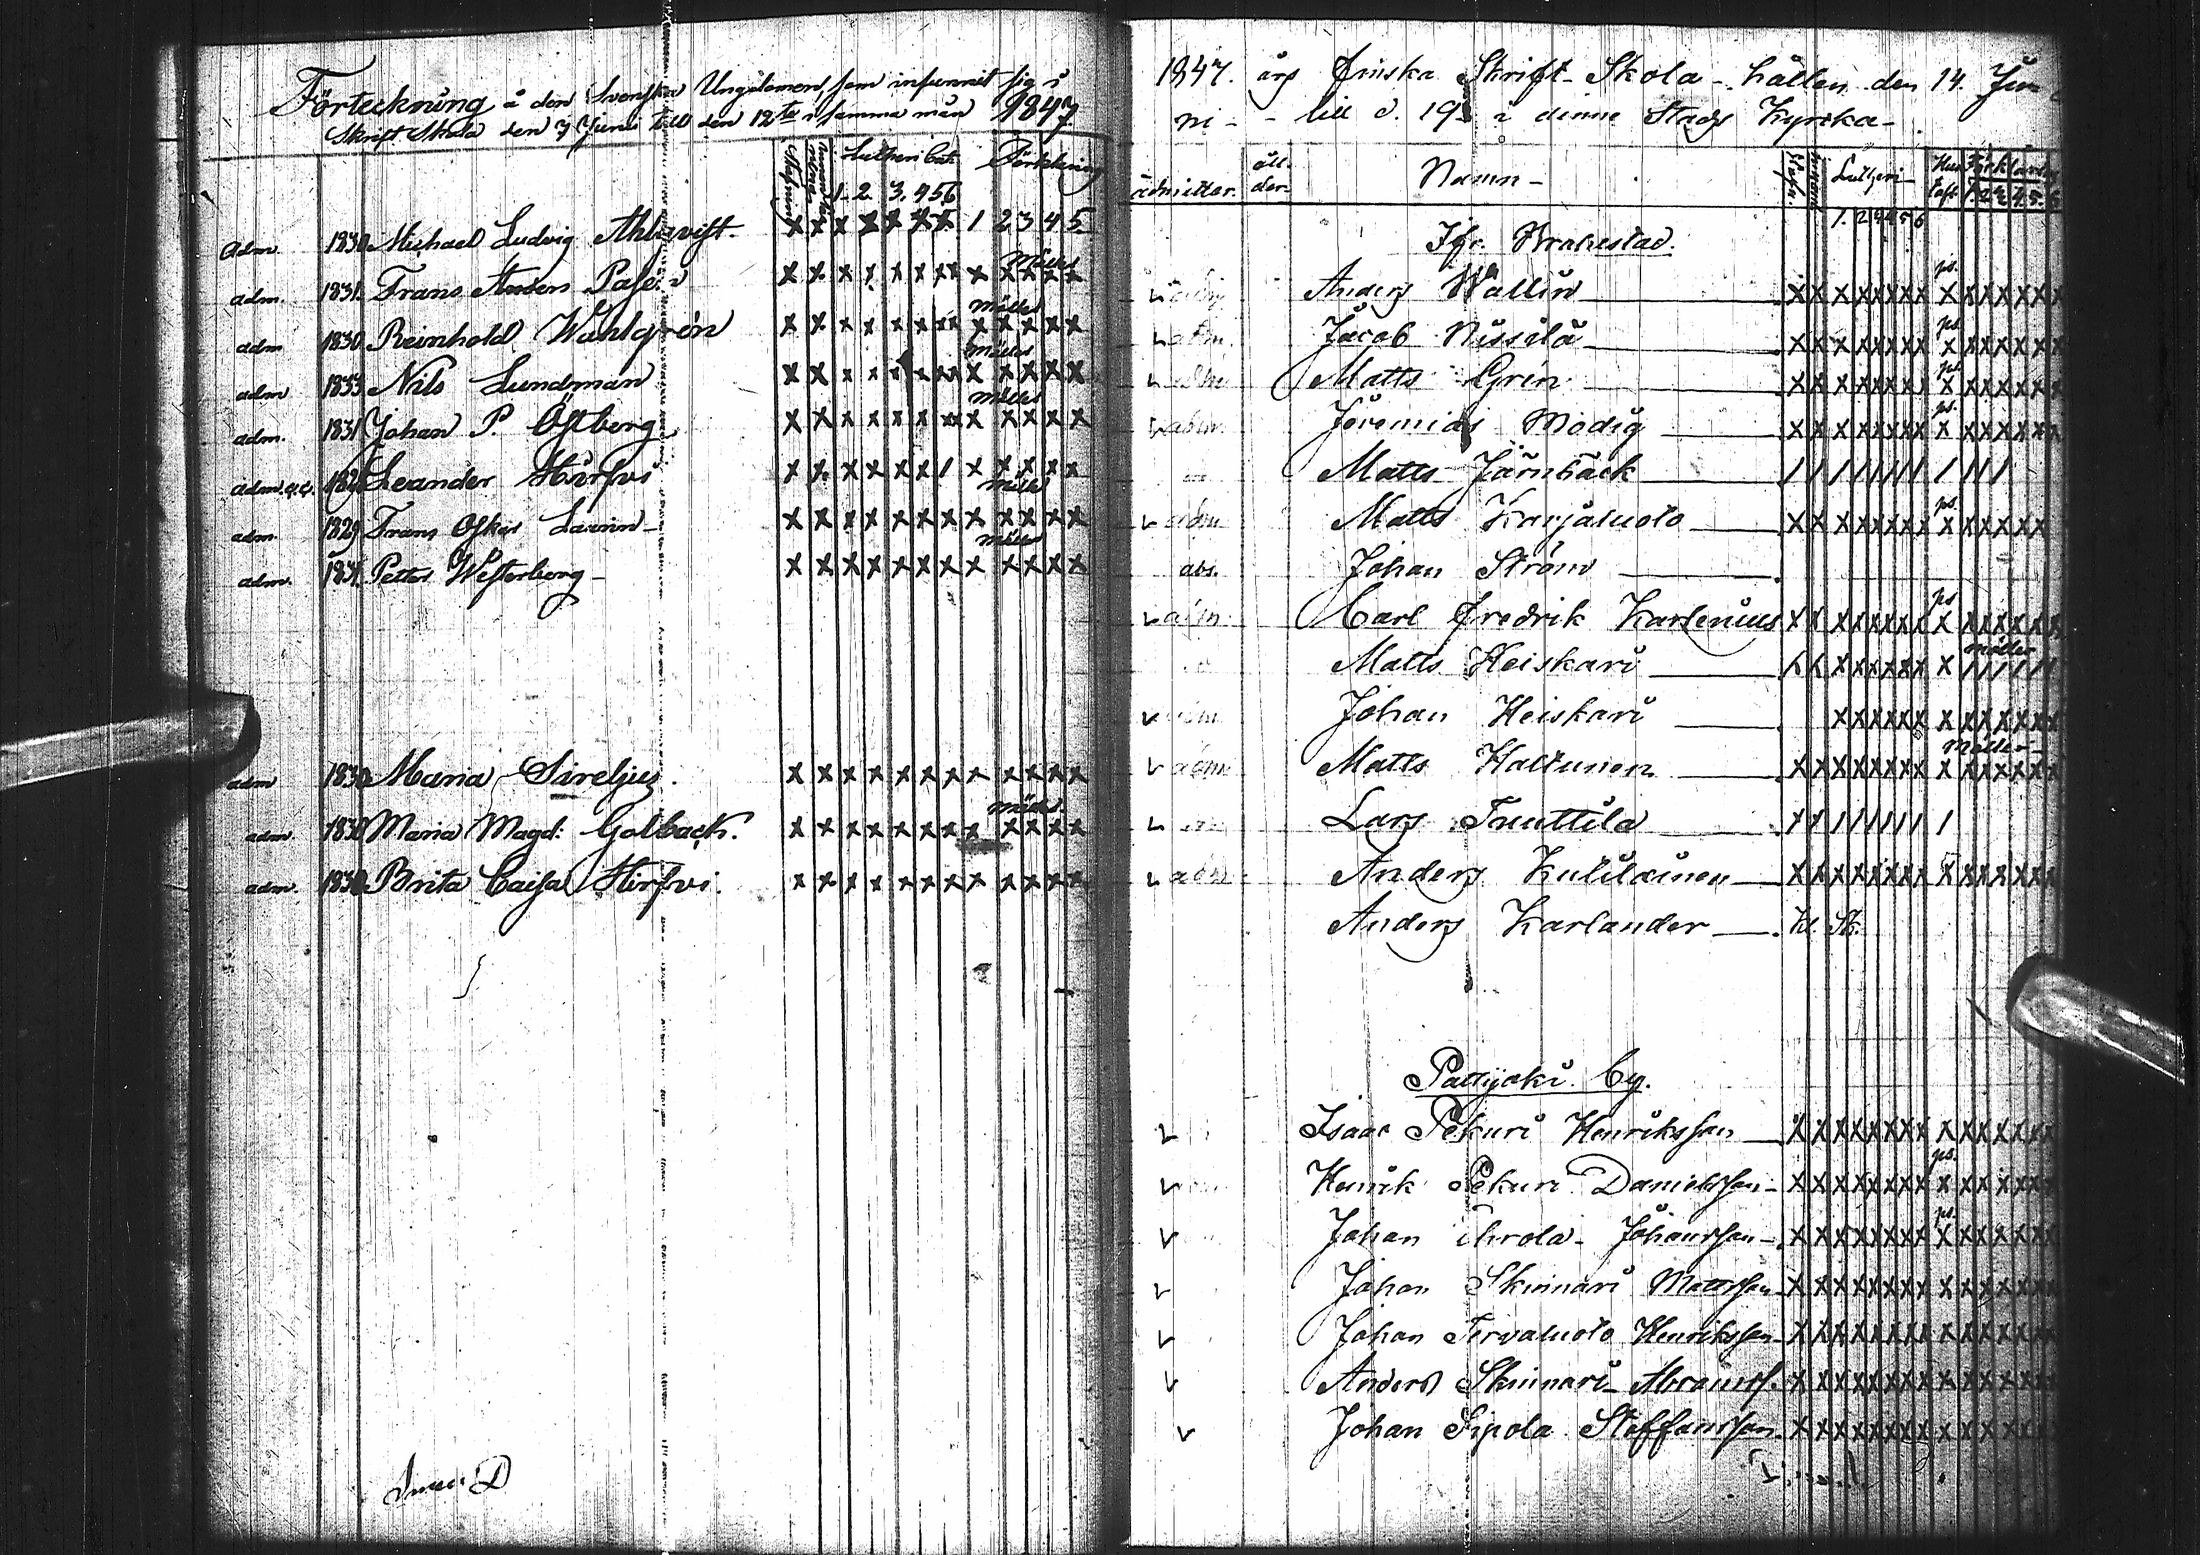 Förteckning å den Svenska Ungdomen som infunnit sig i
Skrift Skola den 7 Junii till den 12te i samma mån 1847
Lutheri Cat. Förklaring
1. 2. 3. 4 5 6
1 2 3 4 5.
Adm. 1830 Michael Ludvig Ahlqvist. x x x x x x x
adm. 1831. Frans x x x x x x x x x x x x
adm 1830 Reinhold Wahlgrén x x x x x x x x x x x x
adm 1833 Nils Lundman x x x x x x x x x x x x
adm. 1831 Johan P. Östberg x x x x x x x x x x x x
adm. Leander Hirfvi x x x x x x / x x x x x
adm. 1829 Frans Oskar x x x x x x x x x x x x
adm. Petter Westerberg x x x x x x x x x x x x
adm 1830 Maria Sireljus. x x x x x x x x x x x x
adm. 1830 Maria Magd: Golback. x x x x x x x x x x x x
adm. 1830 Brita Caisa Hirfvi. x x x x x x x x x x x x
1847. års finska Skrift-Skola hållen den 14. Ju
ni till d. 19 i denna Stads Kyrka
admitter. ål der. Namn Lutheri Hus tafl. Förklaring
1. 2 3 4 5 6
Ifr. Brahestad.
adm Anders Wallin x x x x x x x x x x x x x x
adm. Jacob Nissilä x x x x x x x x x x x x x x
adm Matts Grén x x x x x x x x x x x x x x
adm. Jeremias Modig x x x x x x x x x x x x x x
Matts Järnbäck / / / / / / / / / / / /
adm Matts Karjaluoto x x x x x x x x x x x x x x
abs. Johan Ström
adm. Carl Fredrik Karlenius x x x x x x x x x x x x x x
Matts Heiskari x x x x x x x / / / / /
Johan Heiskari x x x x x x x x x x x x
adm Matts Haltunen x x x x x x x x x x x x x x
Lars Tuuttila / / / / / / / / /
adm Anders Kulilainen x x x x x x x x x x x x x x
Anders Karlander
Pattijoki by.
Isaac Pekuri Henriksson x x x x x x x x x x x x x x
Henrik Pekuri Danielsson x x x x x x x x x x x x x x
Johan Johansson x x x x x x x x x x x x x x
Johan Skinnari Mattsson x x x x x x x x x x x x x x
Johan Tervaluoto Henriksson x x x x x x x x x x x x x x
Anders Skinnari Abramss. x x x x x x x x x x x x x x
Johan Sipola Steffansson x x x x x x x x x x x x x x